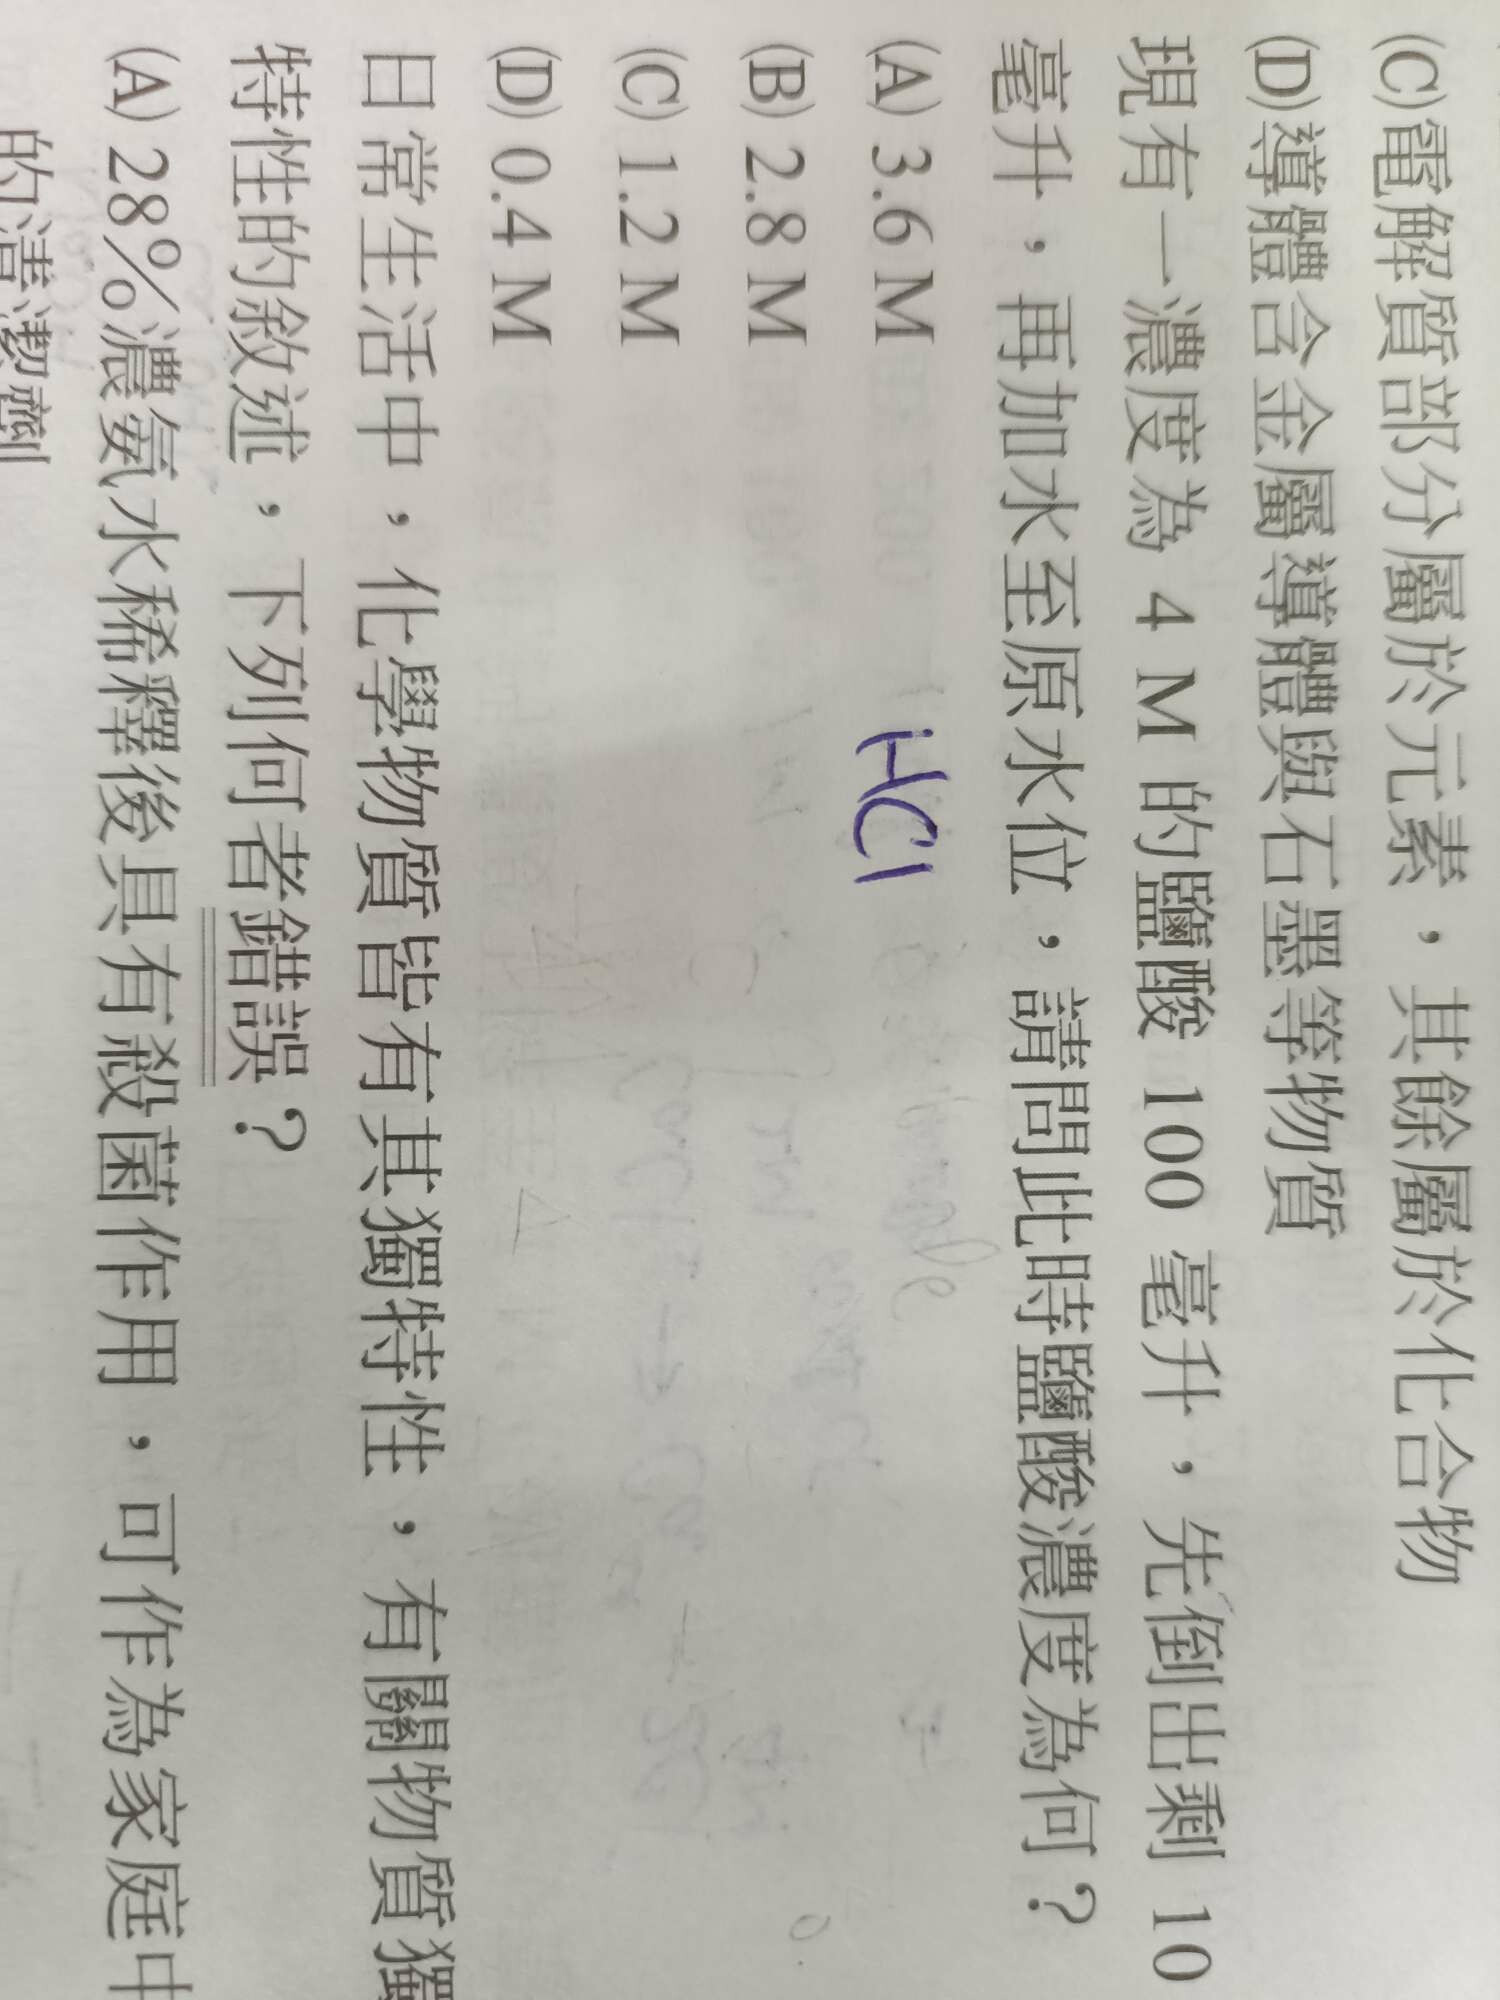 (C)電解質部分屬於元素，其餘屬於化合物
(D)導體含金屬導體與石墨等物質
現有一濃度為 4 M 的鹽酸 100 毫升，先倒出剩 10
毫升，再加水至原水位，請問此時鹽酸濃度為何？
(A) 3.6 M
HCl
(B) 2.8 M
(C) 1.2 M
(D) 0.4 M
日常生活中，化學物質皆有其獨特性，有關物質獨
特性的敘述，下列何者錯誤？
(A) 28％濃氨水稀釋後具有殺菌作用，可作為家庭中
的清潔劑